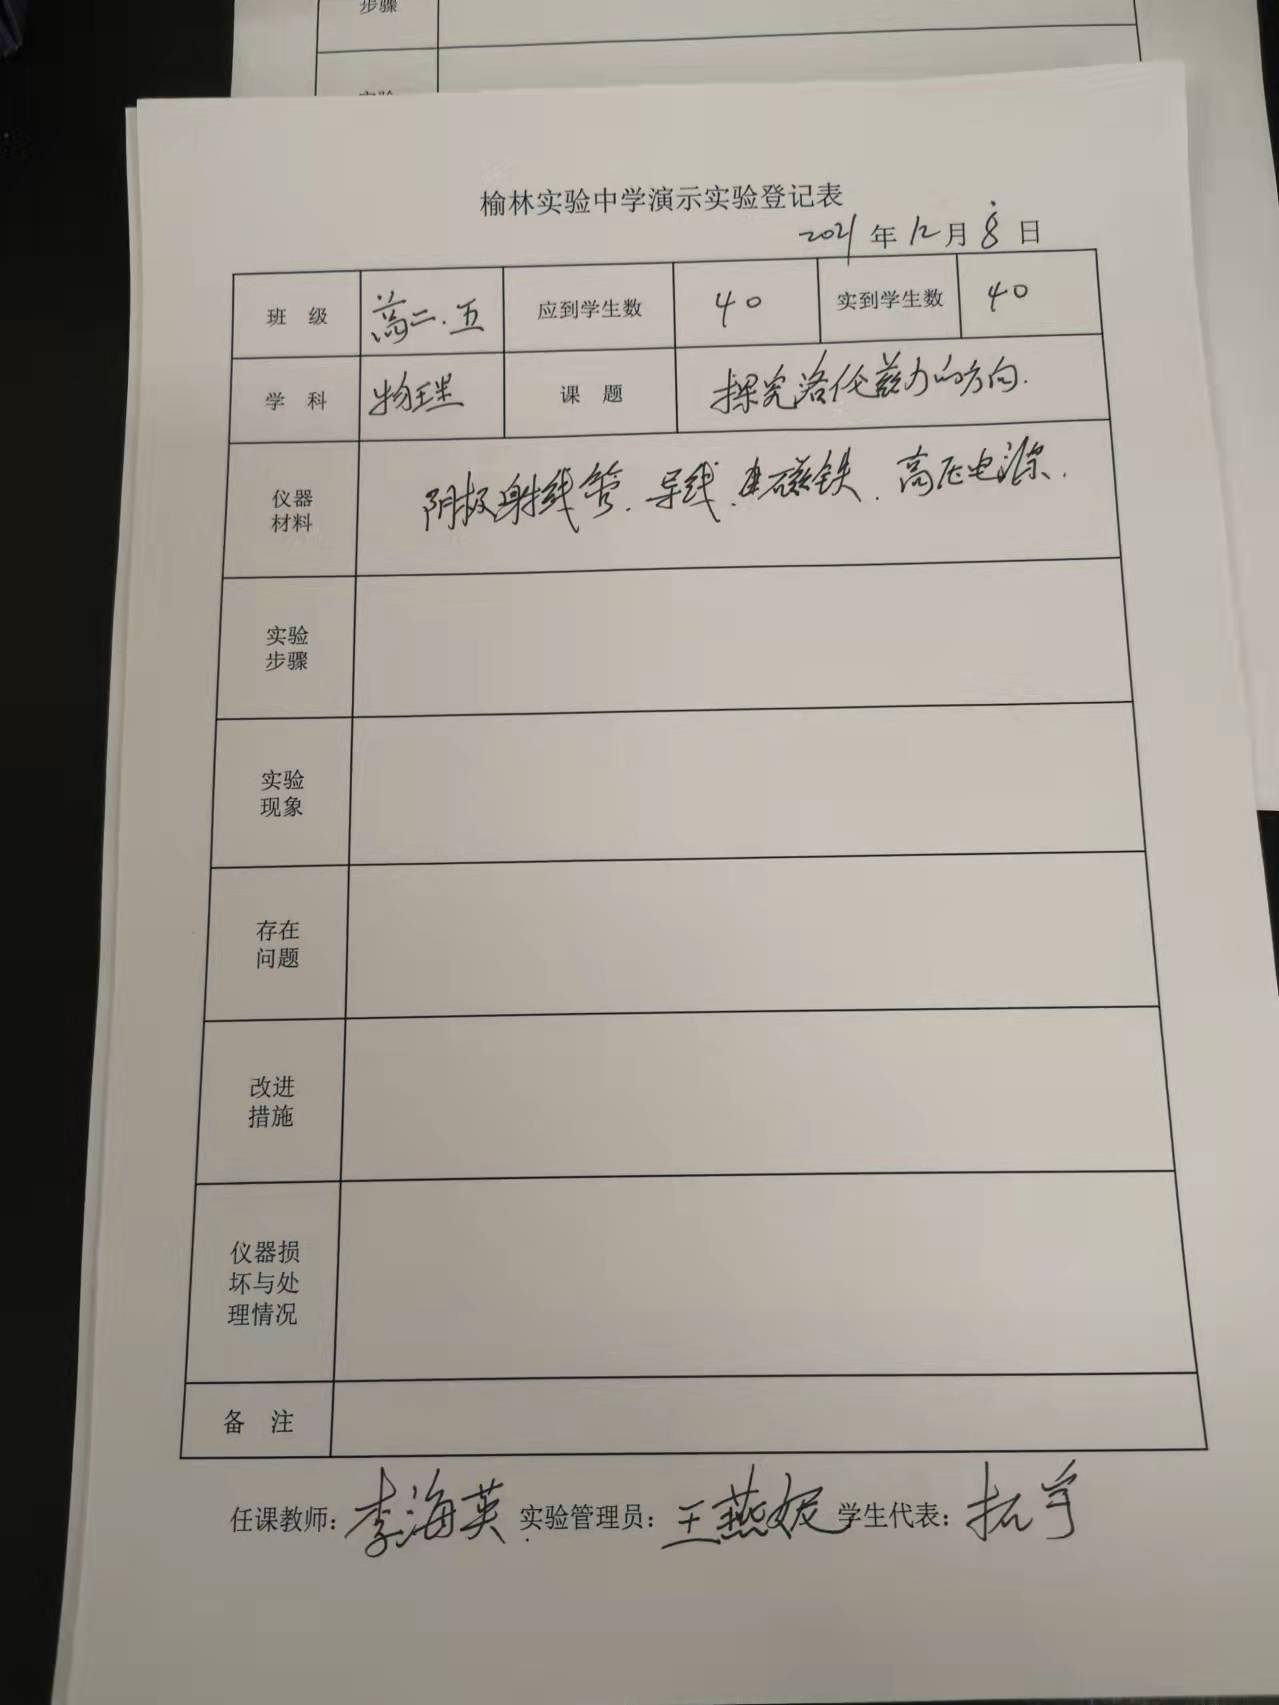 步骤
榆林实验中学演示实验登记表
2021年12月8日
班 级 高二.五 应到学生数 40 实到学生数 40
学 科 物理 课 题 探究洛伦兹力的方向.
仪器
材料
阴极射线管.导线.电磁铁.高压电源.
实验
步骤
实验
现象
存在
问题
改进
措施
仪器损
坏与处
理情况
备 注
任课教师: 李海英 实验管理员: 王燕妮 学生代表: